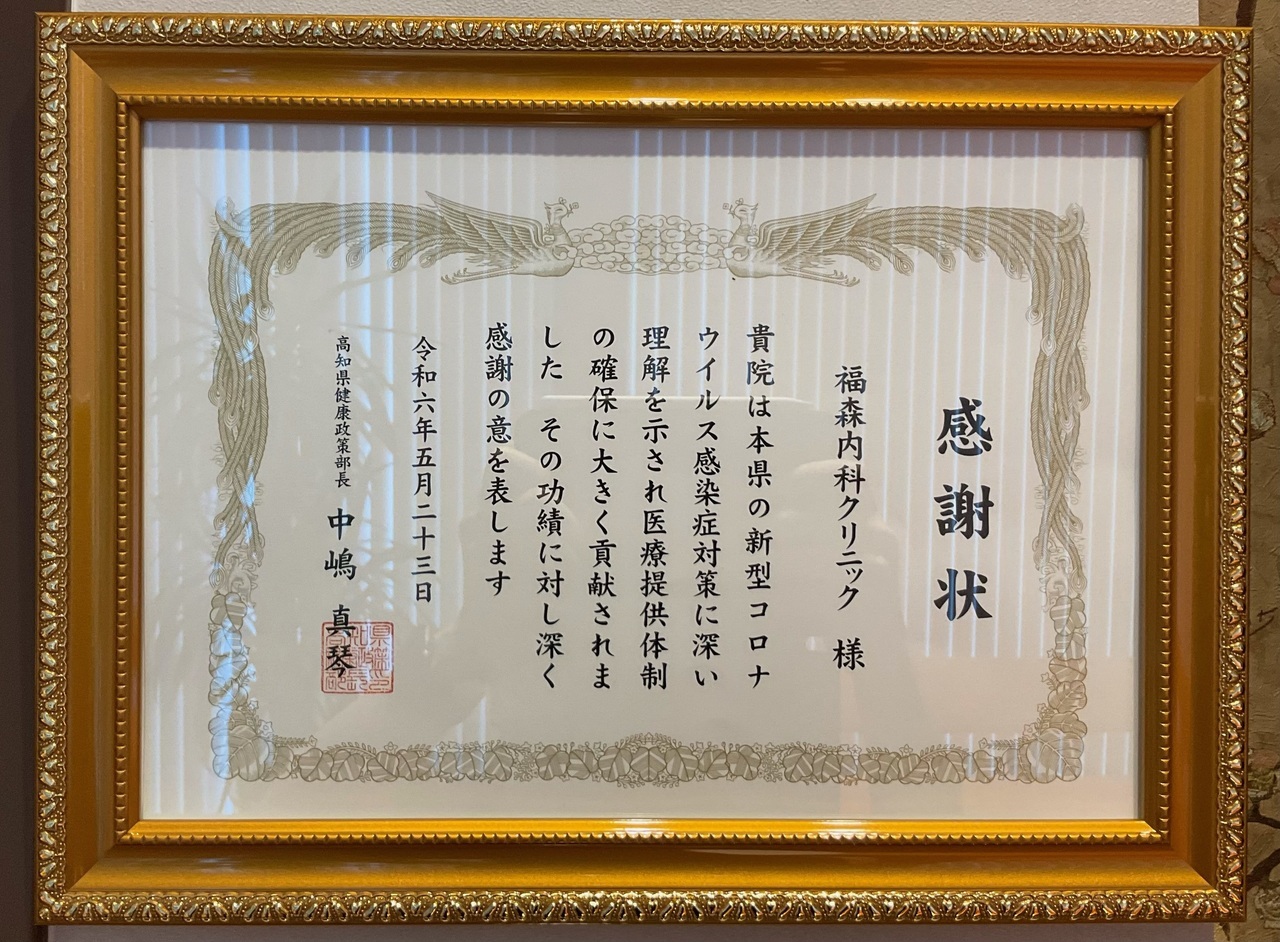 感謝状
福森内科クリニック 様
貴院は本県の新型コロナ
ウイルス感染症対策に深い
理解を示され医療提供体制
の確保に大きく貢献されま
した その功績に対し深く
感謝の意を表します
令和六年五月二十三日
高知県健康政策部長 中嶋 真琴